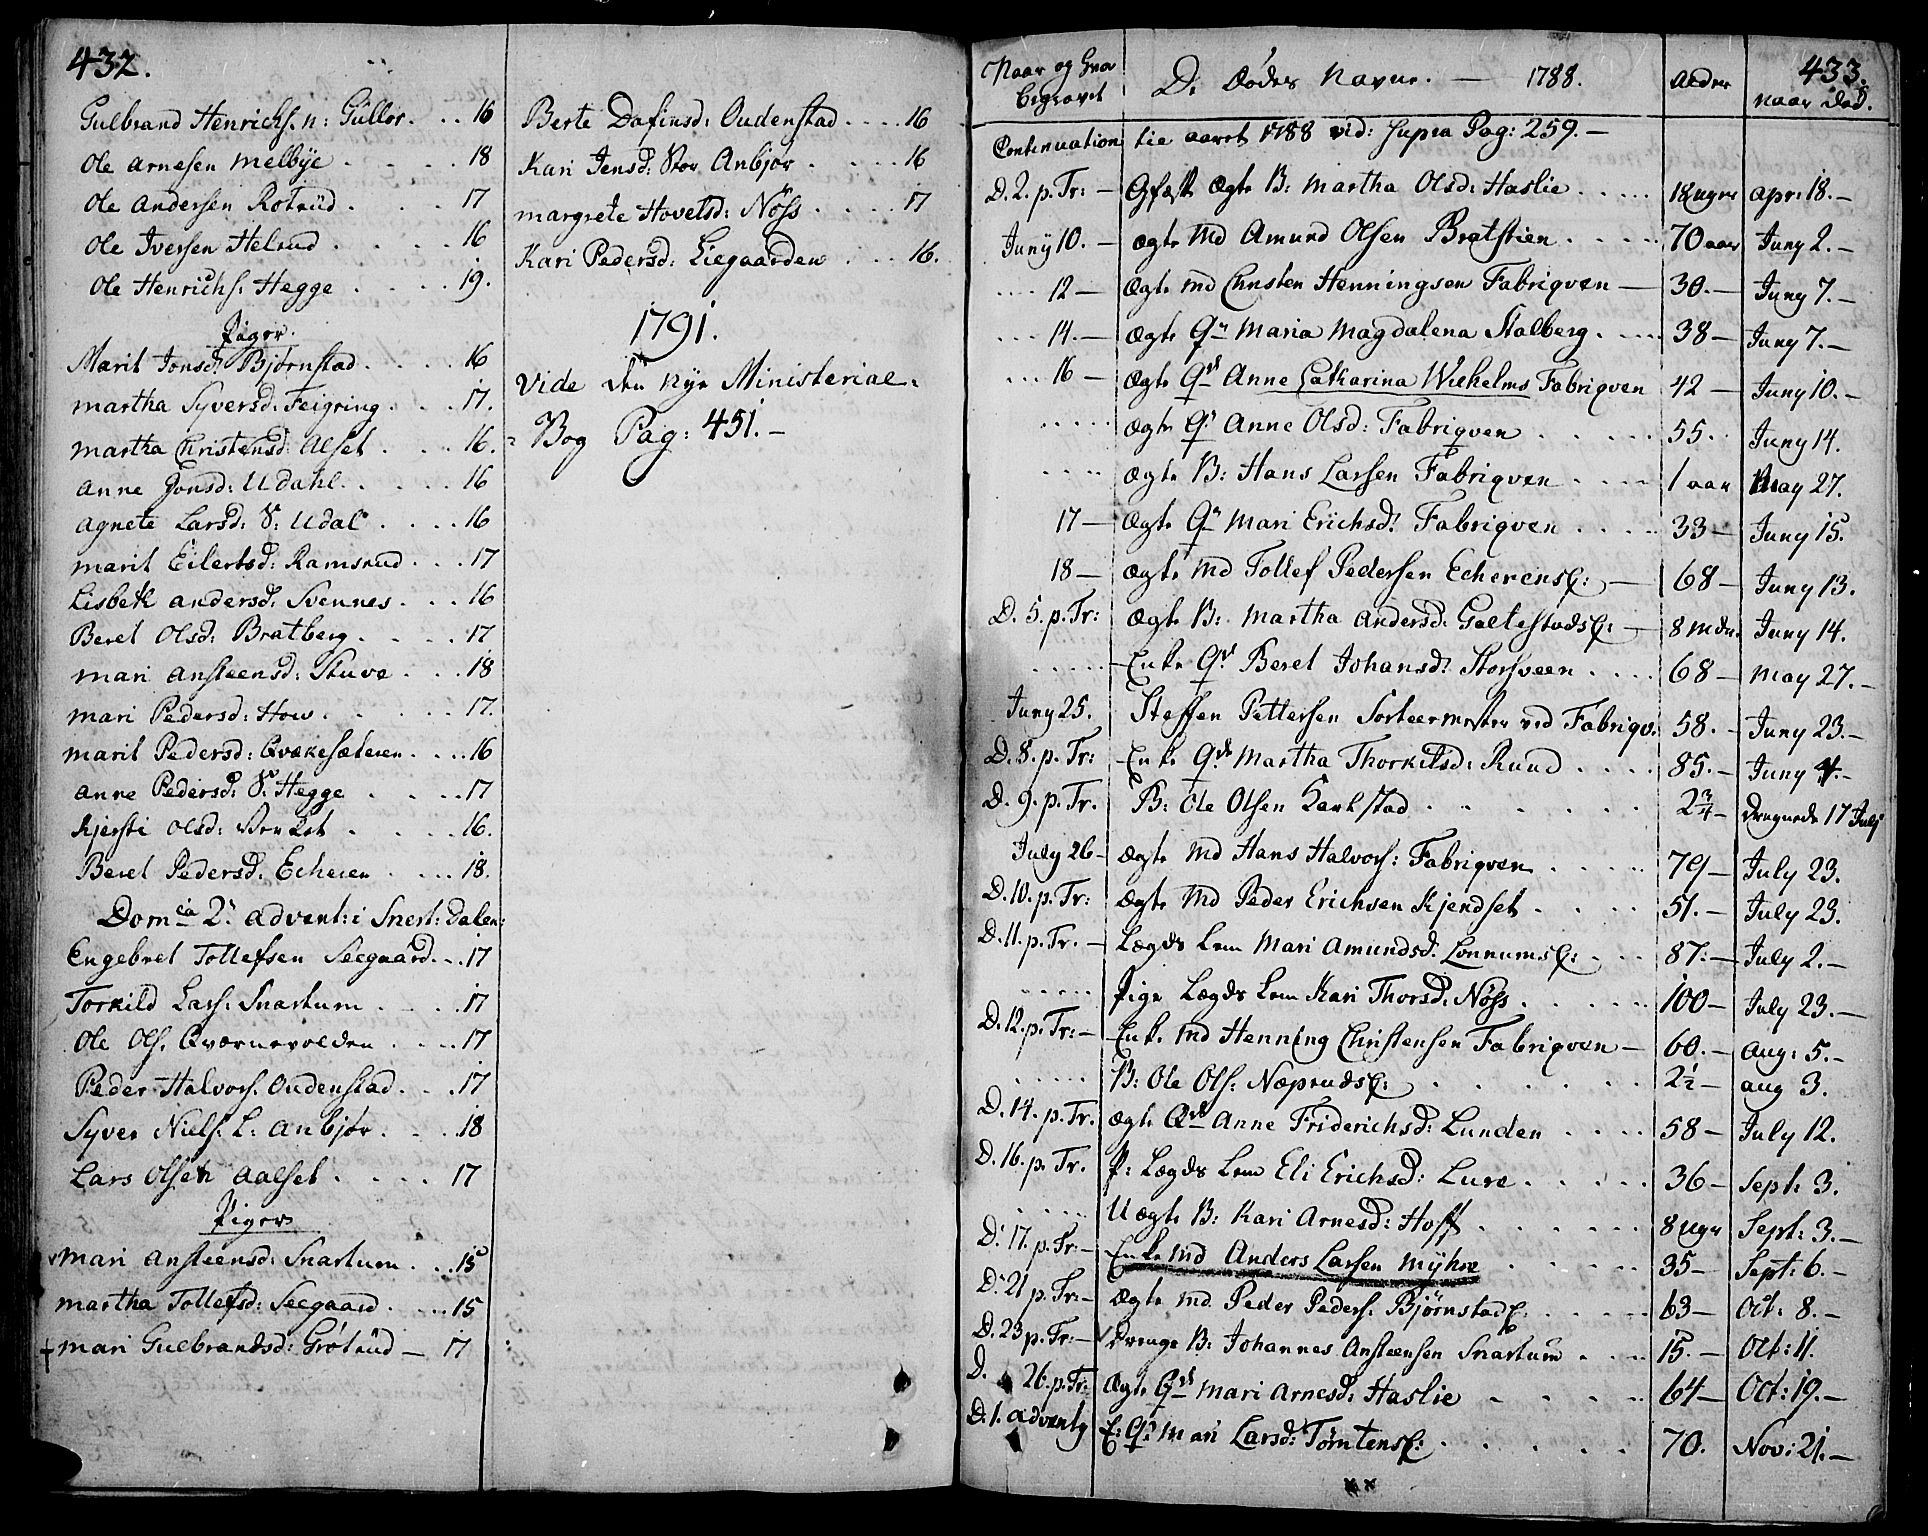 432.
Gulbrand Henrichs. n: Gullør . . 16
Ole Arnesen Melbÿe . . . . 18
Ole Andersen Rotrüd . . . . 17
Ole Iversen Helrud . . . . 16
Ole Henrichs. Hegge . . . . 19.
Piger.
Marit Jonsd: Bjørnstad . . . . 16
Martha Syversd: Feigring . . . 17.
Martha Christensd: Alset . . . 16.
Anne Jonsd: Udahl . . . . 16
Agnete Larsd: S: Udal . . . . 16
Marit Eilertsd: Ramsrud . . . 17
Lisbeth Andersd: Svennes . . . 16
Beret Olsd: Bratberg . . . . 17
Mari Ansteensd: Stuve . . . 18
Mari Pedersd: How . . . . 17.
Marit Pedersd: Qvækesæteren . . . 16
Anne Pedersd: S: Hegge . . . . 17
Kjersti Olsd: . . . . 16.
Beret Pedersd. Echeren . . . . 18.
Domca 2. Advent: i Snert: Dalen:
Engebret Tollefsen Seegaard . . . 17
Torkild Lars: Snartum . . . . 17
Ole Ols. Qværnevolden . . . . 17
Peder Halvors. Oudenstad . . . 17
Syver Niels: L: Anbjør . . . . 18
Lars Olsen Aalset . . . . 17
Piger
Mari Ansteensd: Snartum . . . 15
Martha Tollefsd: Seegaard . . . 15
+ Mari Gulbrandsd: Grøtrüd — 17
Berte Dafinsd: Oudenstad . . . . 16
Kari Jensd: Stor Anbjør . . . . 16
Margrete Hovelsd: Nøss . . . . 17
Kari Pedersd: Liegaarden . . . 16.
1791.
Vide den nye Ministerial=
= Bog Pag: 451. —
433.
Naar og Begravet
De Dødes Navne. — 1788.
Alder
naar død.
Continuation til aaret 1788 vid: supra Pag: 259. —
D. 2. p. Tr: — Ægte B: Martha Olsd: Haslie . . . . 18 uger Apr: 18. —
Junÿ 10. — Ægte Md Amund Olsen Bratstien . . . . 70 aar Juny 2. —
. . . . 12 — Ægte Md Christen Henningsen Fabriqven — 30. — Juny 7. —
. . . . 14. — Ægte Qv Maria Magdalena Stalberg . . . . 38 — Juny 7. —
. . . 16 — Ægte Qv Anne Catharina Wilhelms Fabriqven 42 — Juny 10. —
. . . . . Ægte Q: Anne Olsd: Fabriqven . . . . 55. Juny 14.
. . . . Ægte B: Hans Larsen Fabriqven . . . . 1 aar May 27.
17 — Ægte Qv Mari Erichsd: Fabriqven . . . . 33 — Juny 15.
18 — Ægte Md Tollef Pedersen Echerens: — 68 — Juny 13.
D. 5. p. Tr: Ægte B: Martha Andersd: Galtestads: — 8 mdr. Juny 14.
. . . . . Enke Qv Beret Johansd: Storsveen . . . . 68 — May 27. —
Juny 25. Steffen Pettersen Sorteermester ved Fabriqv: 58. — Juny 23. —
D. 8. p. Tr: Enke Qv Martha Thorkilsd: Ruud . . . . 85. — Juny 4. —
D. 9. p. Tr. B: Ole Olsen . . . . 2 3/4 — Druknede 17 July
July 26 — Ægte Md Hans Halvors: Fabriqven . . . . 79 — July 23.
D. 10. p. Tr: Ægte Md Peder Erichsen Kjendset . . . . 51. — July 23.
D. 11. p. Tr. — Lægds Lem Mari Amundsd. Lonnums: . . . 87: — July 2. —
. . . . . Pige Lægds Lem Kari Thorsd: Nøss . . . . 100 — July 23. —
D. 12. p. Tr: — Enke Md Henning Christensen Fabriqven — 60. — Aug: 5. —
. . . . . B: Ole Ols: Næpruds: . . . . 2 1/2 — Aug 3.
D. 14. p. Tr. Ægte Qv Anne Friderichsd: Lunden . . . . 58 — July 12.
D. 16. p. Tr. P: Lægds Lem Eli Erichsd: Lure . . . . 36 — Sept: 3.
. . . . . Uægte B: Kari Arnesd: Hoff . . . . 8 uger Sept: 3. —
D. 17. p. Tr: — Enke Md Anders Larsen Myhre . . . . 35 — Sept: 6. —
D. 21 p. Tr: — Ægte Md. Peder Peders: Bjørnstad . . . . 63 — Oct: 8. —
D. 23 p. Tr: — Drenge B: Johannes Ansteensen Snartum . . . 15. — Oct: 11.
D. 26. p. Tr: Ægte Qv Mari Arnesd: Haslie . . . . 64 — Oct: 19. —
D. 1. Adventg E: Qv Mari Larsd: Tømtens: . . . . 70. Nov: 21. —